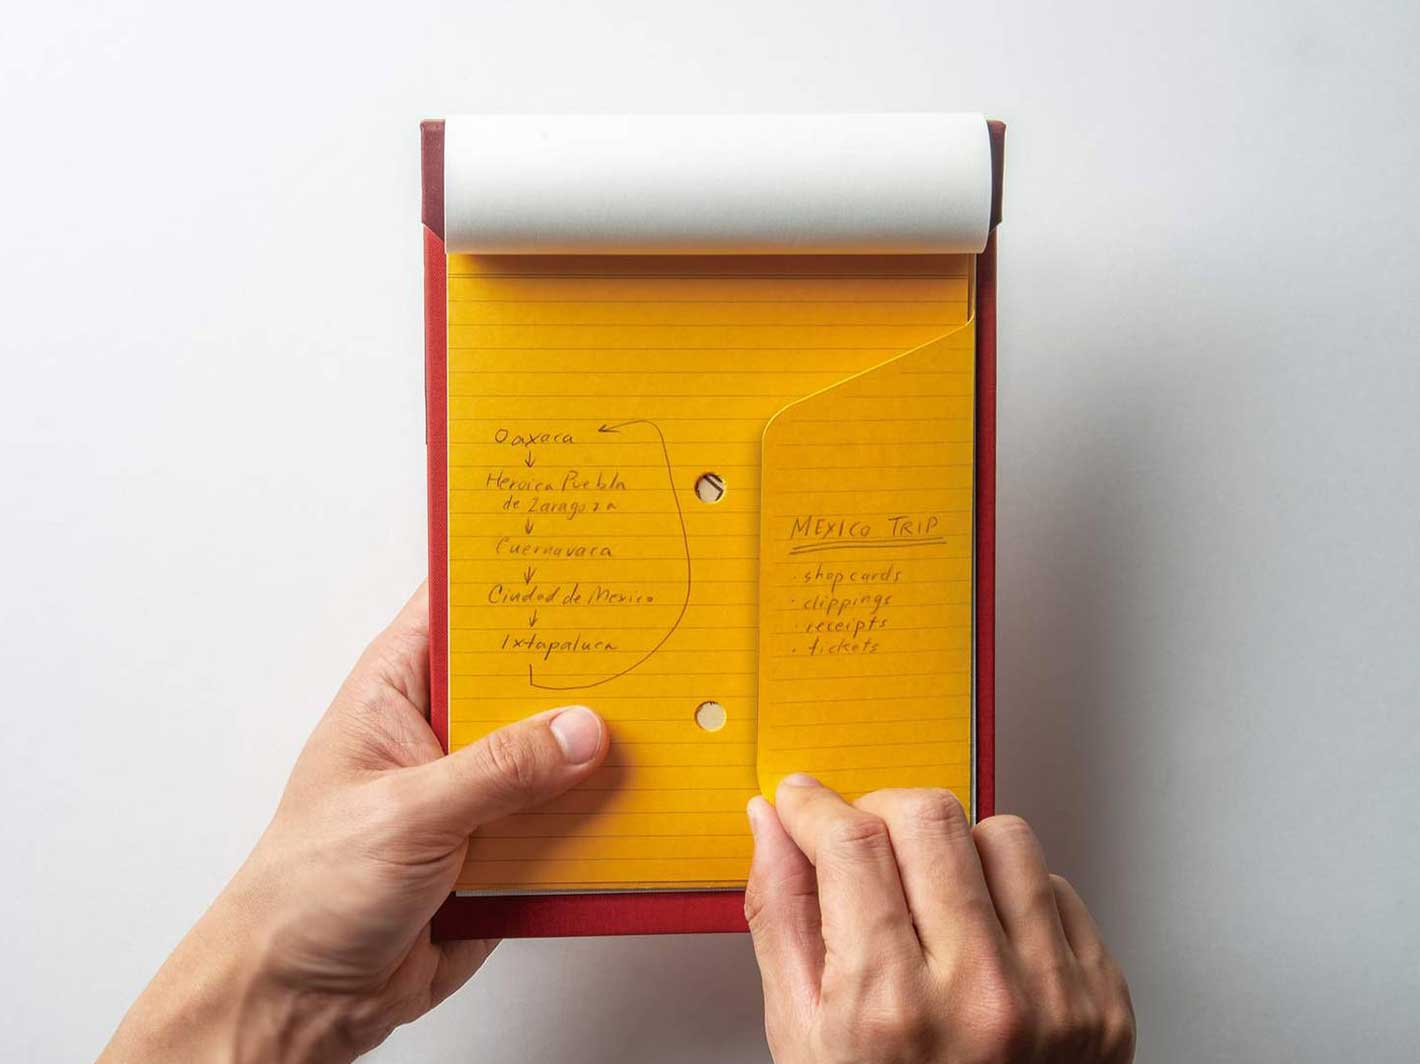 Oaxaca
↓
Heroica Puebla
de Zaragoza
↓
Cuernavaca
↓
Ciudad de Mexico
↓
Ixtapaluca
MEXICO TRIP
· shop cards
· clippings
· receipts
· tickets